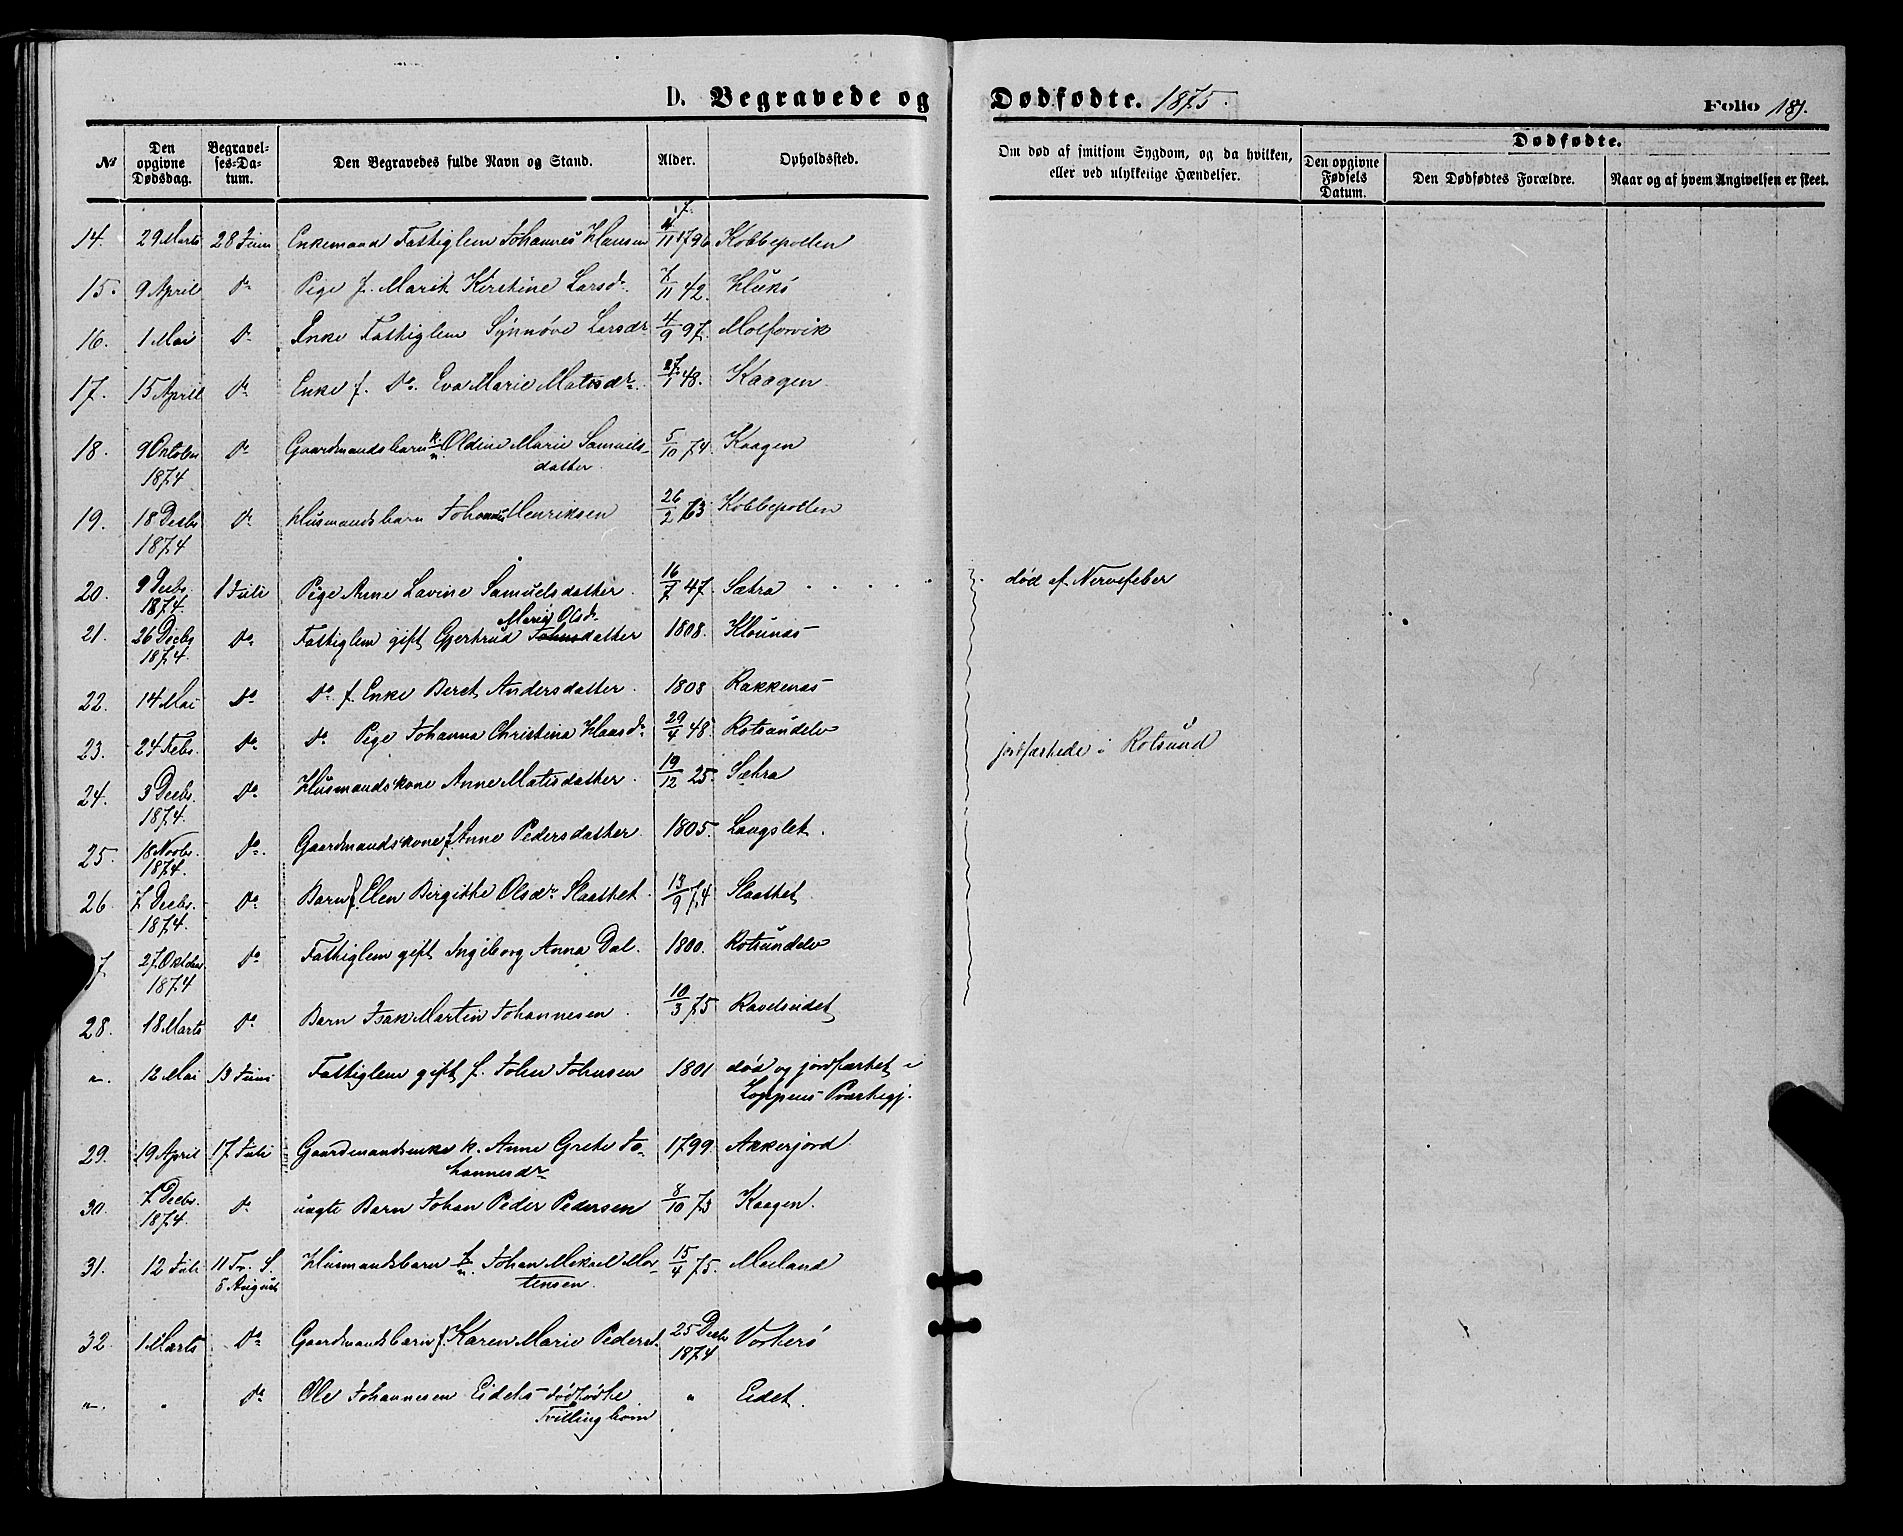 D. Begravede og Dødfødte. 1875.
Folio 187.
No
Den opgivne Dødsdag.
Begravelses-Datum.
Den Begravedes fulde Navn og Stand.
Alder.
Opholdssted.
Om død af smitsom Sygdom, og da hvilken, eller ved ulykkelige Hændelser.
Dødfødte.
Den opgivne Fødsels Datum.
Den Dødfødtes Forældre.
Naar og af hvem Angivelsen er skeet.
14. 29 Marts 28 Juni Enkemand Fattiglem Johannes Hansen 11 1796 Kobbepollen
15. 9 April Do Pige f. Marit Kirstine Larsdr. 7/11 42. Hukø
16. 1 Mai Do Enke Fattiglem Synnøve Larsdr 4/9 97. Molforvik
17. 15 April Do Enke f. Do. Eva Marie Matisdr. 27/1 48. Kaagen
18. 9 Oktober 1874 Do Gaardmandsbarn Oldine Marie Samuelsdatter 5/10 74. Kaagen
19. 18 Decbr 1874 Do Husmandsbarn Johannes Henriksen 26/2 73 Kobbepollen
20. 9 Decbr. 1874. 1 Juli Pige Anne Lavine Samuelsdatter. 16/7 47. Sætra død af Nervefeber
21. 26 Decbr 1874. Do Fattiglem gift Gjertrud Marie Olsd. Johnsdatter 1808. Klounas
22. 14 Mai Do Do f. Enke Beret Andersdatter. 1808 Rakkenas
23. 24 Febr. Do Do Pige Johanna Christina Hansdr 29/4 48. Rotsundelv jordfæstede i Rotsund
24. 3 Decbr. 1874. Do Husmandskone Anne Matisdatter. 19/12 25. Sætra
25. 18 Novbr. 1874. Do. Gaardmandskone f. Anne Pedersdatter 1805. Langslet.
26. 7 Decbr. 1874. Do Barn f. Elen Birgitte Olsdr Slaattet. 13/9 74 Slaattet
7 27. Oktober 1874 Do Fattiglem gift Ingeborg Anna Dal. 1800. Rotsundelv
28. 18 Marts Do Barn Isak Martin Johannesen. 10/3 75 Ravelseidet
". 12 Mai 13 Juni Fattiglem gift f. John Johnsen 1801 død og jordfæstet i
Loppens Præstegj.
29. 19 April 17 Juli Gaardmandsenke k. Anne Grete Johannesdr 1799. Akkerjord
30. 7 Decbr. 1874. Do uægte Barn Johan Peder Pedersen 8/10 73 Kaagen.
31. 12 Juli 11 Tr. S. 8 August Husmandsbarn Johan Mikael Mortensen. 15/4 75. Meiland
32. 1 Marts Do Gaardmandsbarn f. Karen Marie Pedersd. 25 Decbr 1874 Vorterø
". " Do Ole Johannesen Eidets dødfødte
Tvillingbørn " Eidet.